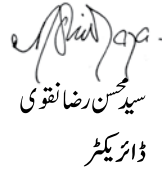 سید محسن رضا نقوی
ڈائریکٹر